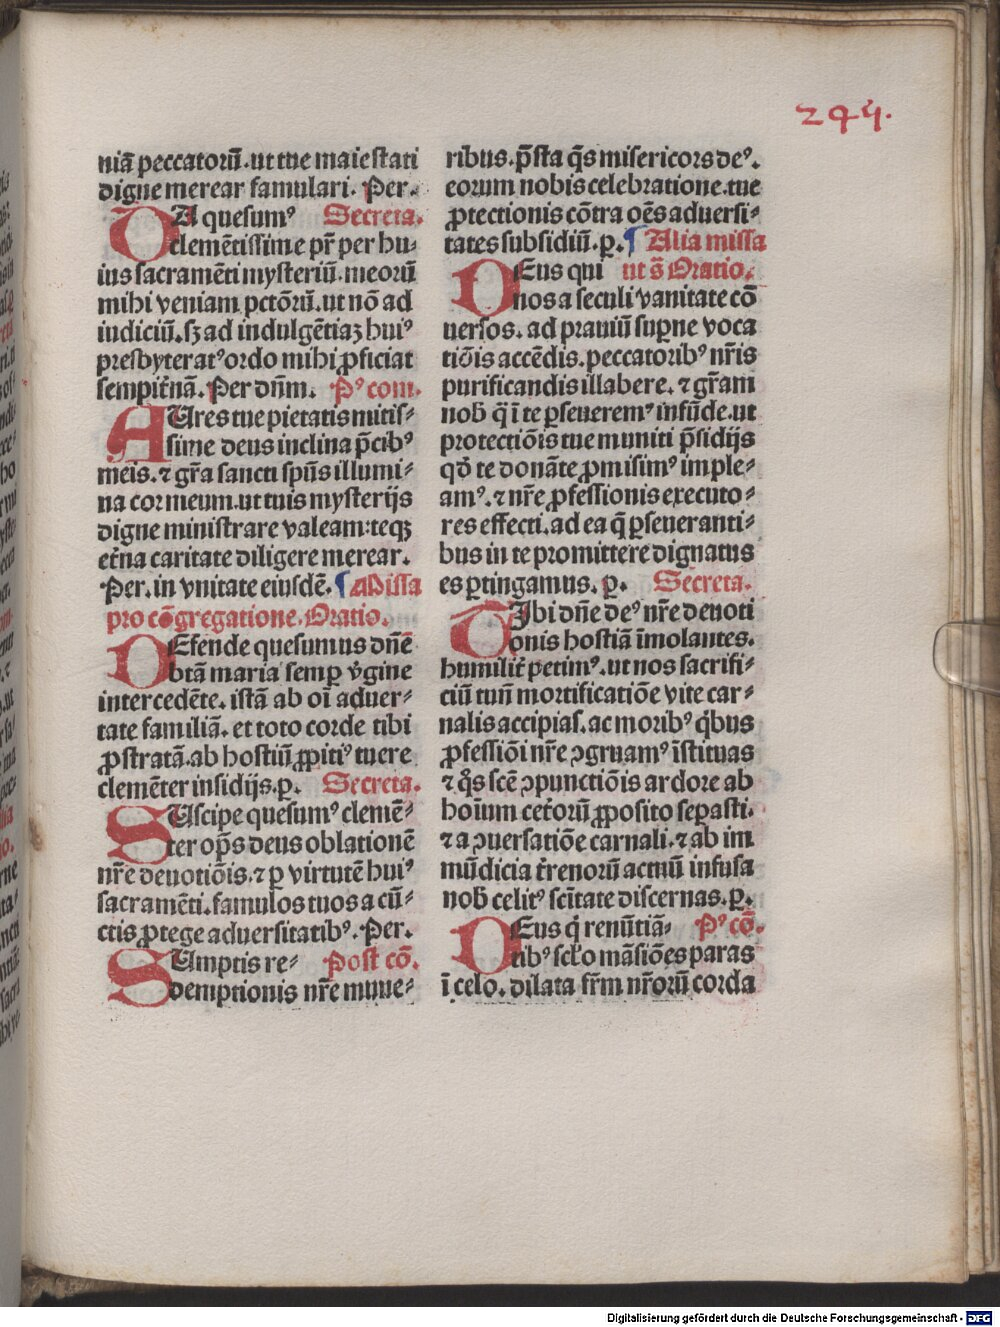 244.
niā peccatorū. ut tue maiestati
digne merear famulari. Per.
DA quesumꝰ Secreta.
clemētissime pr̄ per hu⸗
ius sacramēti mysteriū. meorū
mihi veniam pctōrū. ut nō ad
iudiciū. sꝫ ad indulgētiaꝫ huiꝰ
presbyteratꝰ ordo mihi ꝓficiat
sempit̄nā. Per dn̄m. Pꝰ com.
AUres tue pietatis mitis⸗
sime deus inclina p̄cibꝰ
meis. ⁊ gr̄a sancti sp̄us illumi⸗
na cor meum. ut tuis mysterijs
digne ministrare valeam: teqꝫ
et̄na caritate diligere merear.
Per. in vnitate eiusdē. ¶ Missa
pro cōgregatione. Oratio.
DEfende quesumus dn̄e
btā maria semꝑ v̄gine
intercedēte. istā ab oī aduer⸗
tate familiā. et toto corde tibi
ꝓstratā. ab hostiū ꝓpitiꝰ tuere
clemēter insidijs. ꝑ. Secreta.
SUscipe quesumꝰ clemē⸗
ter op̄s deus oblationē
nr̄e deuotiōis. ⁊ ꝑ virtutē huiꝰ
sacramēti. famulos tuos a cū⸗
ctis ꝓtege aduersitatibꝰ. Per.
SUmptis re⸗ Post cō.
demptionis nr̄e mune⸗
ribus. p̄sta q̄s misericors deꝰ.
eorum nobis celebratione. tue
ꝓtectionis cōtra oēs aduersi⸗
tates subsidiū. ꝑ. ¶ Alia missa
DEus qui ut s̄ Oratio.
nos a seculi vanitate cō
uersos. ad prauiū supne voca
tiōis accēdis. peccatoribꝰ nr̄is
purificandis illabere. ⁊ gr̄am
nob̄ q̄ ī te ꝑseueremꝰ infūde. ut
protectiōis tue muniti p̄sidijs
qd̄ te donāte ꝓmisimꝰ imple⸗
amꝰ. ⁊ nr̄e ꝓfessionis executo⸗
res effecti. ad ea q̄ ꝑseueranti⸗
bus in te promittere dignatus
es ꝑtingamus. ꝑ. Secreta.
TIbi dn̄e deꝰ nr̄e deuoti
onis hostiā īmolantes.
humilit̄ petimꝰ. ut nos sacrifi⸗
ciū tuū mortificatiōe vite car⸗
nalis accipias. ac moribꝰ q̇bus
ꝓfessiōi nr̄e ꝯgruamꝰ īstituas
⁊ q̇s scē ꝯpunctiōis ardore ab
hoīum cet̄orū ꝓposito sepasti.
⁊ a ꝯuersatiōe carnali. ⁊ ab im
mūdicia t̄renorū actuū infusa
nob̄ celitꝰ scītate discernas. ꝑ.
DEus q̇ renūtiā⸗ Pꝰ cō.
tibꝰ sclo māsiōes paras
ī celo. dilata fr̄m nr̄orū corda
Digitalisierung gefördert durch die Deutsche Forschungsgemeinschaft - DFG